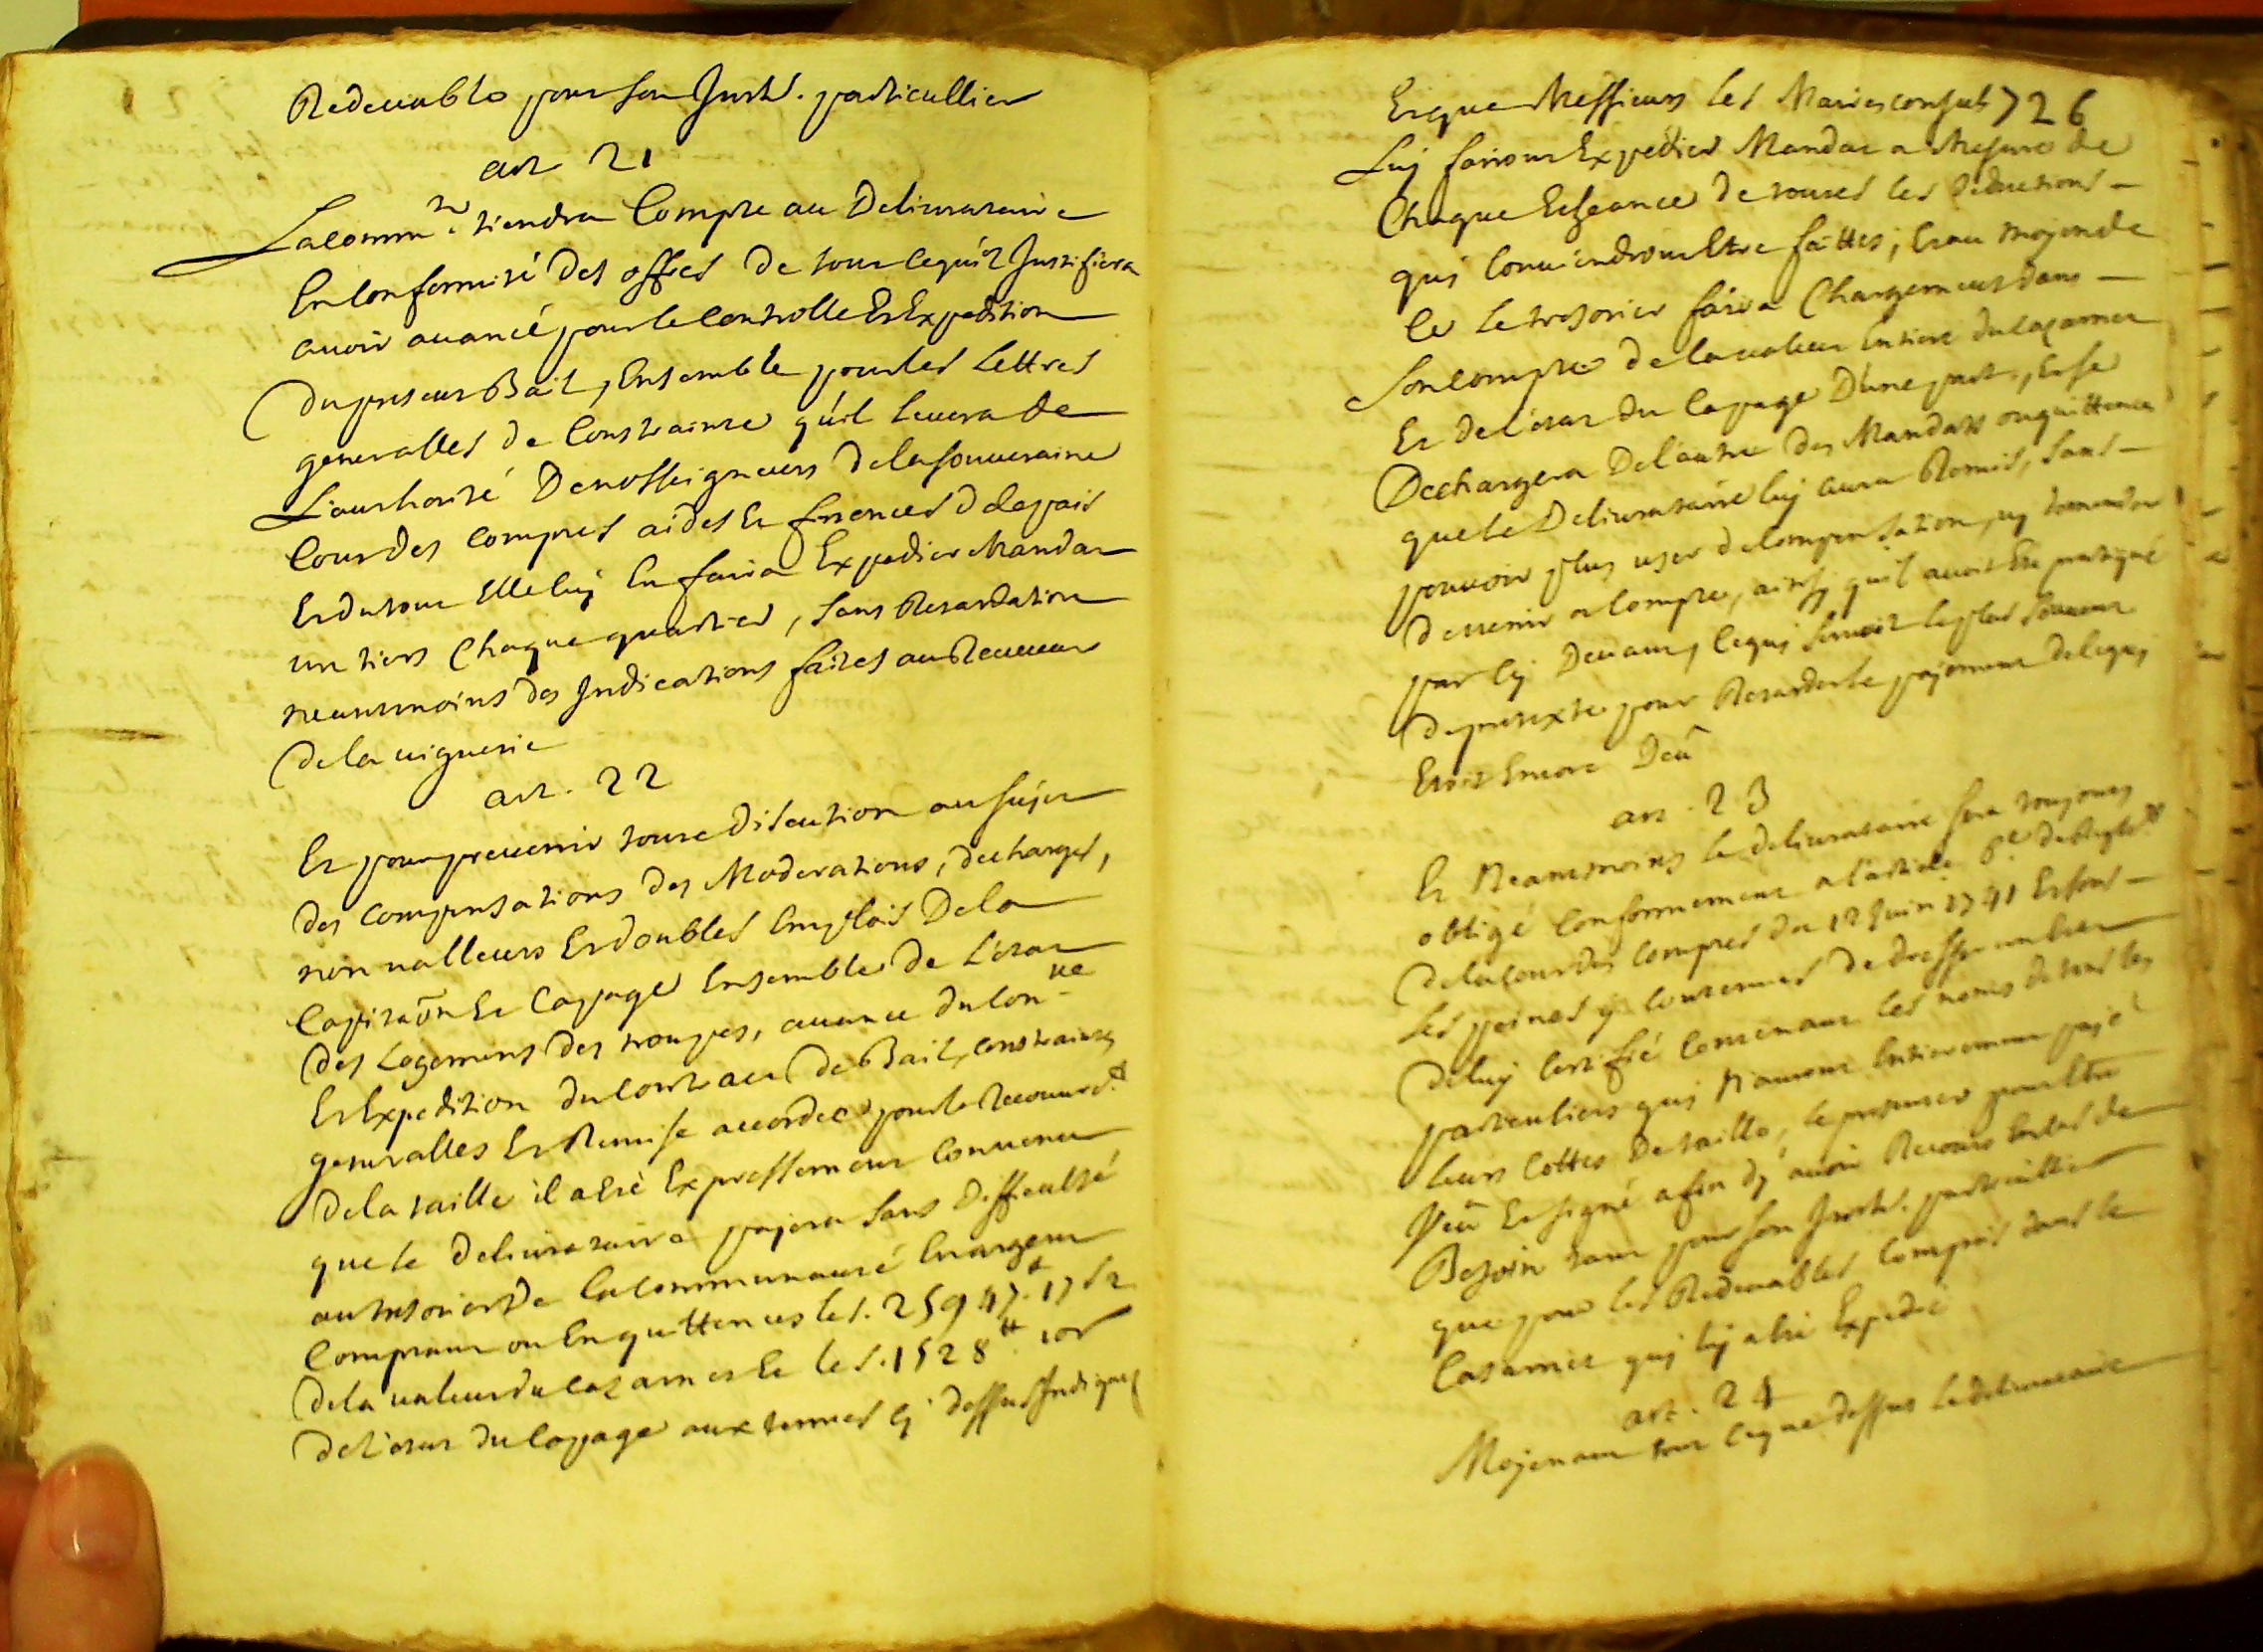 Redeuable pour son Jnteret. particullier
art 21
La comm.té tiendra Compte au Deliurataire
En Conformité des offres de tout ce qu'il Justifiera
auoir auancé pour le Controlle Et Expedition
Du present Bail, Ensemble pour les Lettres
generalles de Constrainte qu'il leuera de
L'authorité De nosseigneurs de la souueraine
Cour des Comptes aides Et finences de ce pais
Et du tout Elle luy En faira Expedier Mandat
un tiers Chaque quartier, sans Retardation
neantmoins des Jndications faites au Receueur
De la viguerie
art. 22
Et pour preuenir toute discution au sujet
des Compensations des Moderations, decharges,
non valleurs Et doubles Emplois De la
Capita͠on Et Capage Ensemble de L'état
Des Logements des troupes, auance du Con.lle
Et Expedition du Contract De Bail, Constraintes
generalles Et Remise accordée pour le Recouure.t
De la taille il a Eté Expressement Conuenu
que le deliurataire payera sans Difficulté
au tresorier de la Communauté En argent
Comptant ou En quittences les. 25947.tt 17 s 2
De la valeur du Cazarnet Et les. 1528tt. 10s
De l'état du Capage aux termes cy dessus Jndiqués
Et que Messieurs les Maires Consuls 726
Luy fairont Expedier Mandat a Mesure de
Chaque Echeance de toutes les deductions
qui Conuiendront Etre faittes; Et au moyen de
Ce le tresorier faira Chargement dans
Son Compte de la valeur Entiere du Cazarnet
Et de l'état du Capage D'une part, Et se
Dechargera De l'autre des Mandats ou quittences
que le Deliurataire luy aura Remis, sans
pouuoir plus user de Compensation, ny demander
de venir a Compte, ainsy qu'il auoit Eté pratiqué
par cy Deuant, Ce qui seruoit le plus souuent
de pretexte pour Retarder le payement de ce qui
Etoit Encore Deû
art. 23
Et Neantmoins le deliurataire sera toujours
obligé Conformement a l'article 6.e du Reglem.t
De la Cour des Comptes du 12 Juin 1741 Et sous
Les peines y Contenues de dresser un Etat
De luy Certifié Contenant les noms de tous les
particuliers qui N'auront Entierement payé
leurs Cottes De taille, le presenter pour Etre
Veû Et signé afin d'y auoir Recours En Cas de
Besoin tant pour son Jnteret. particullier
que pour les Redeuables Compris dans le
Cazarnet qui luy a Eté Expedié
art. 24
Moyenant tout Ce que dessus le deliurataire